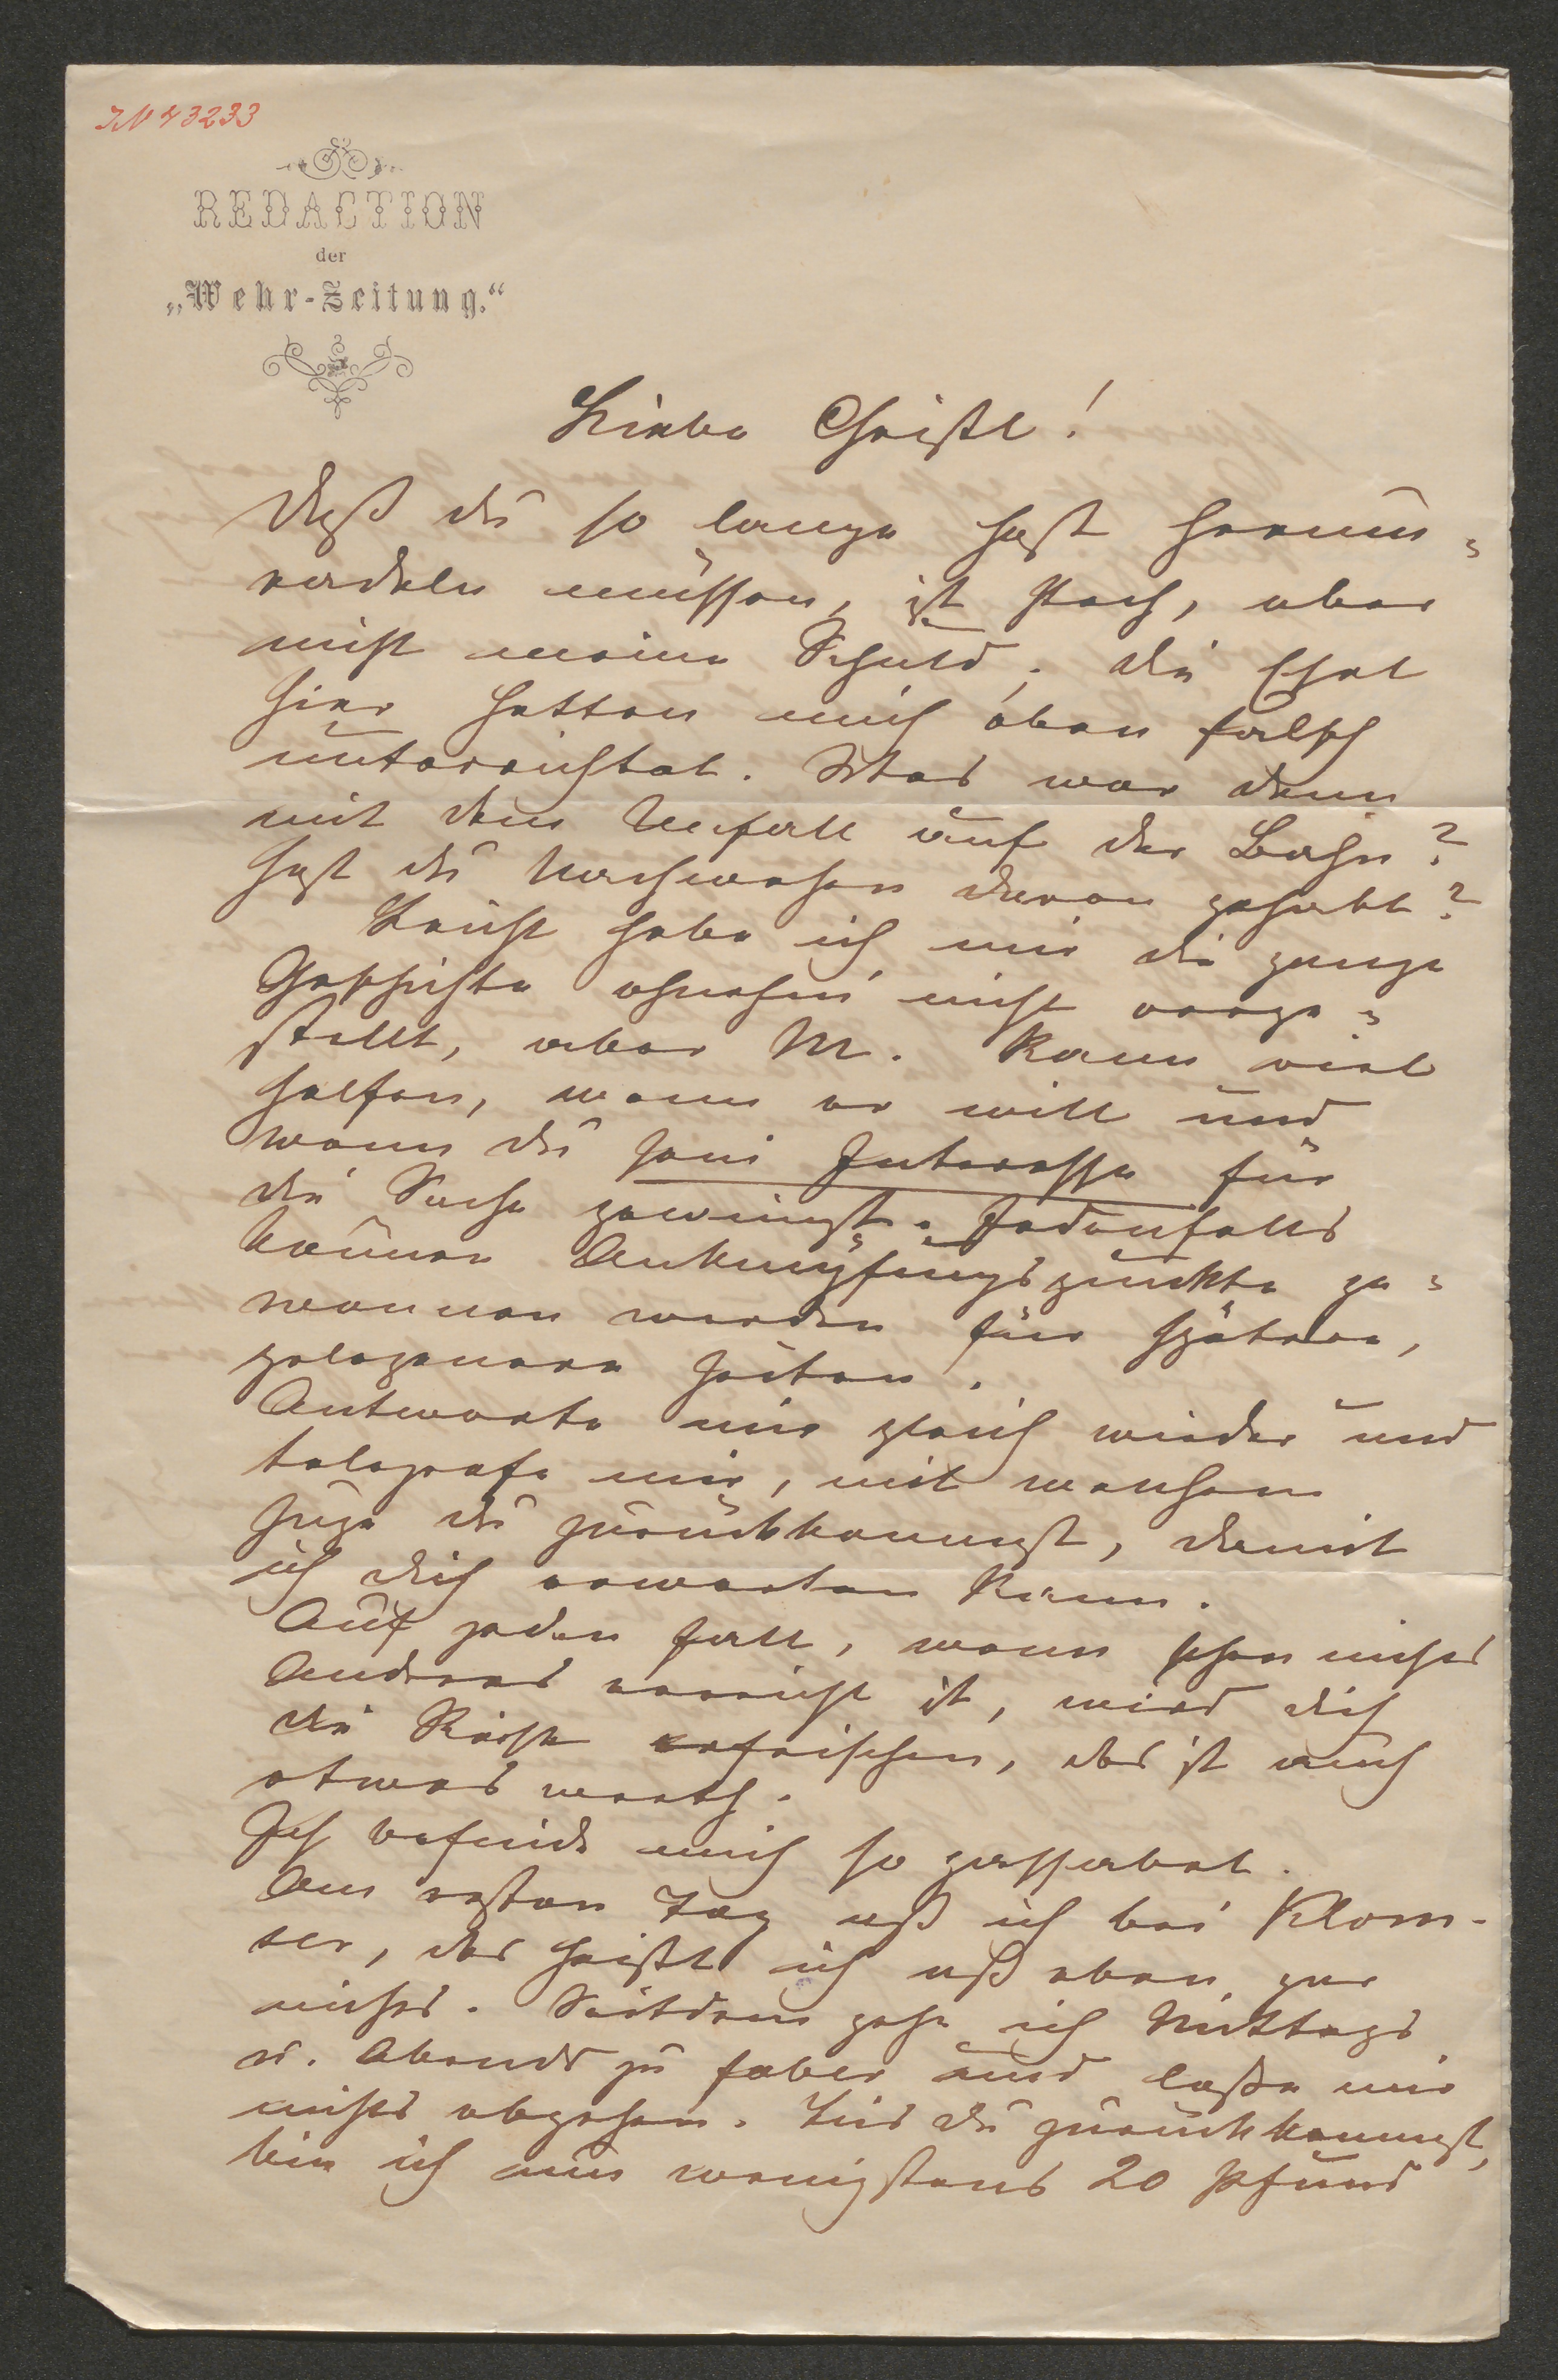 IN 43233
REDACTION
der
„Wehr-Zeitung.“
Liebe Christl!
Daß du so lange hast herum=
radeln müssen, ist stark, aber
nicht meine Schuld; die Esel
hier hatten mich eben falsch
unterrichtet. Was war denn
mit dem Unfall auf der Bahn?
hast du Nachwehen davon gehabt?
Leicht habe ich mir die ganze
Geschichte ohnehin nicht vorge=
stellt, aber M. kann viel
helfen, wenn er will und
wenn du sein Interesse für
die Sache gewinnst. Jedenfalls
können Anknüpfungspunkte ge=
wonnen werden für spätere,
gelegenere Zeiten.
Antworte mir gleich wieder und
telegrafe mir, mit welchem
Zuge du zurückkommst, damit
ich dich erwarten kann.
Auf jeden Fall, wenn schon nichts
Anderes erreicht ist, wird dich
die Reise erfrischen, das ist auch
etwas werth.
Ich befinde mich so passabel.
Am ersten Tag aß ich bei Klom-
ser, das heißt ich aß eben gar
nichts. Seitdem gehe ich Mittags
u. Abends zu Faber und laße mir
nichts abgehen. Bis du zurückkommst,
bin ich um wenigstens 20 Pfund